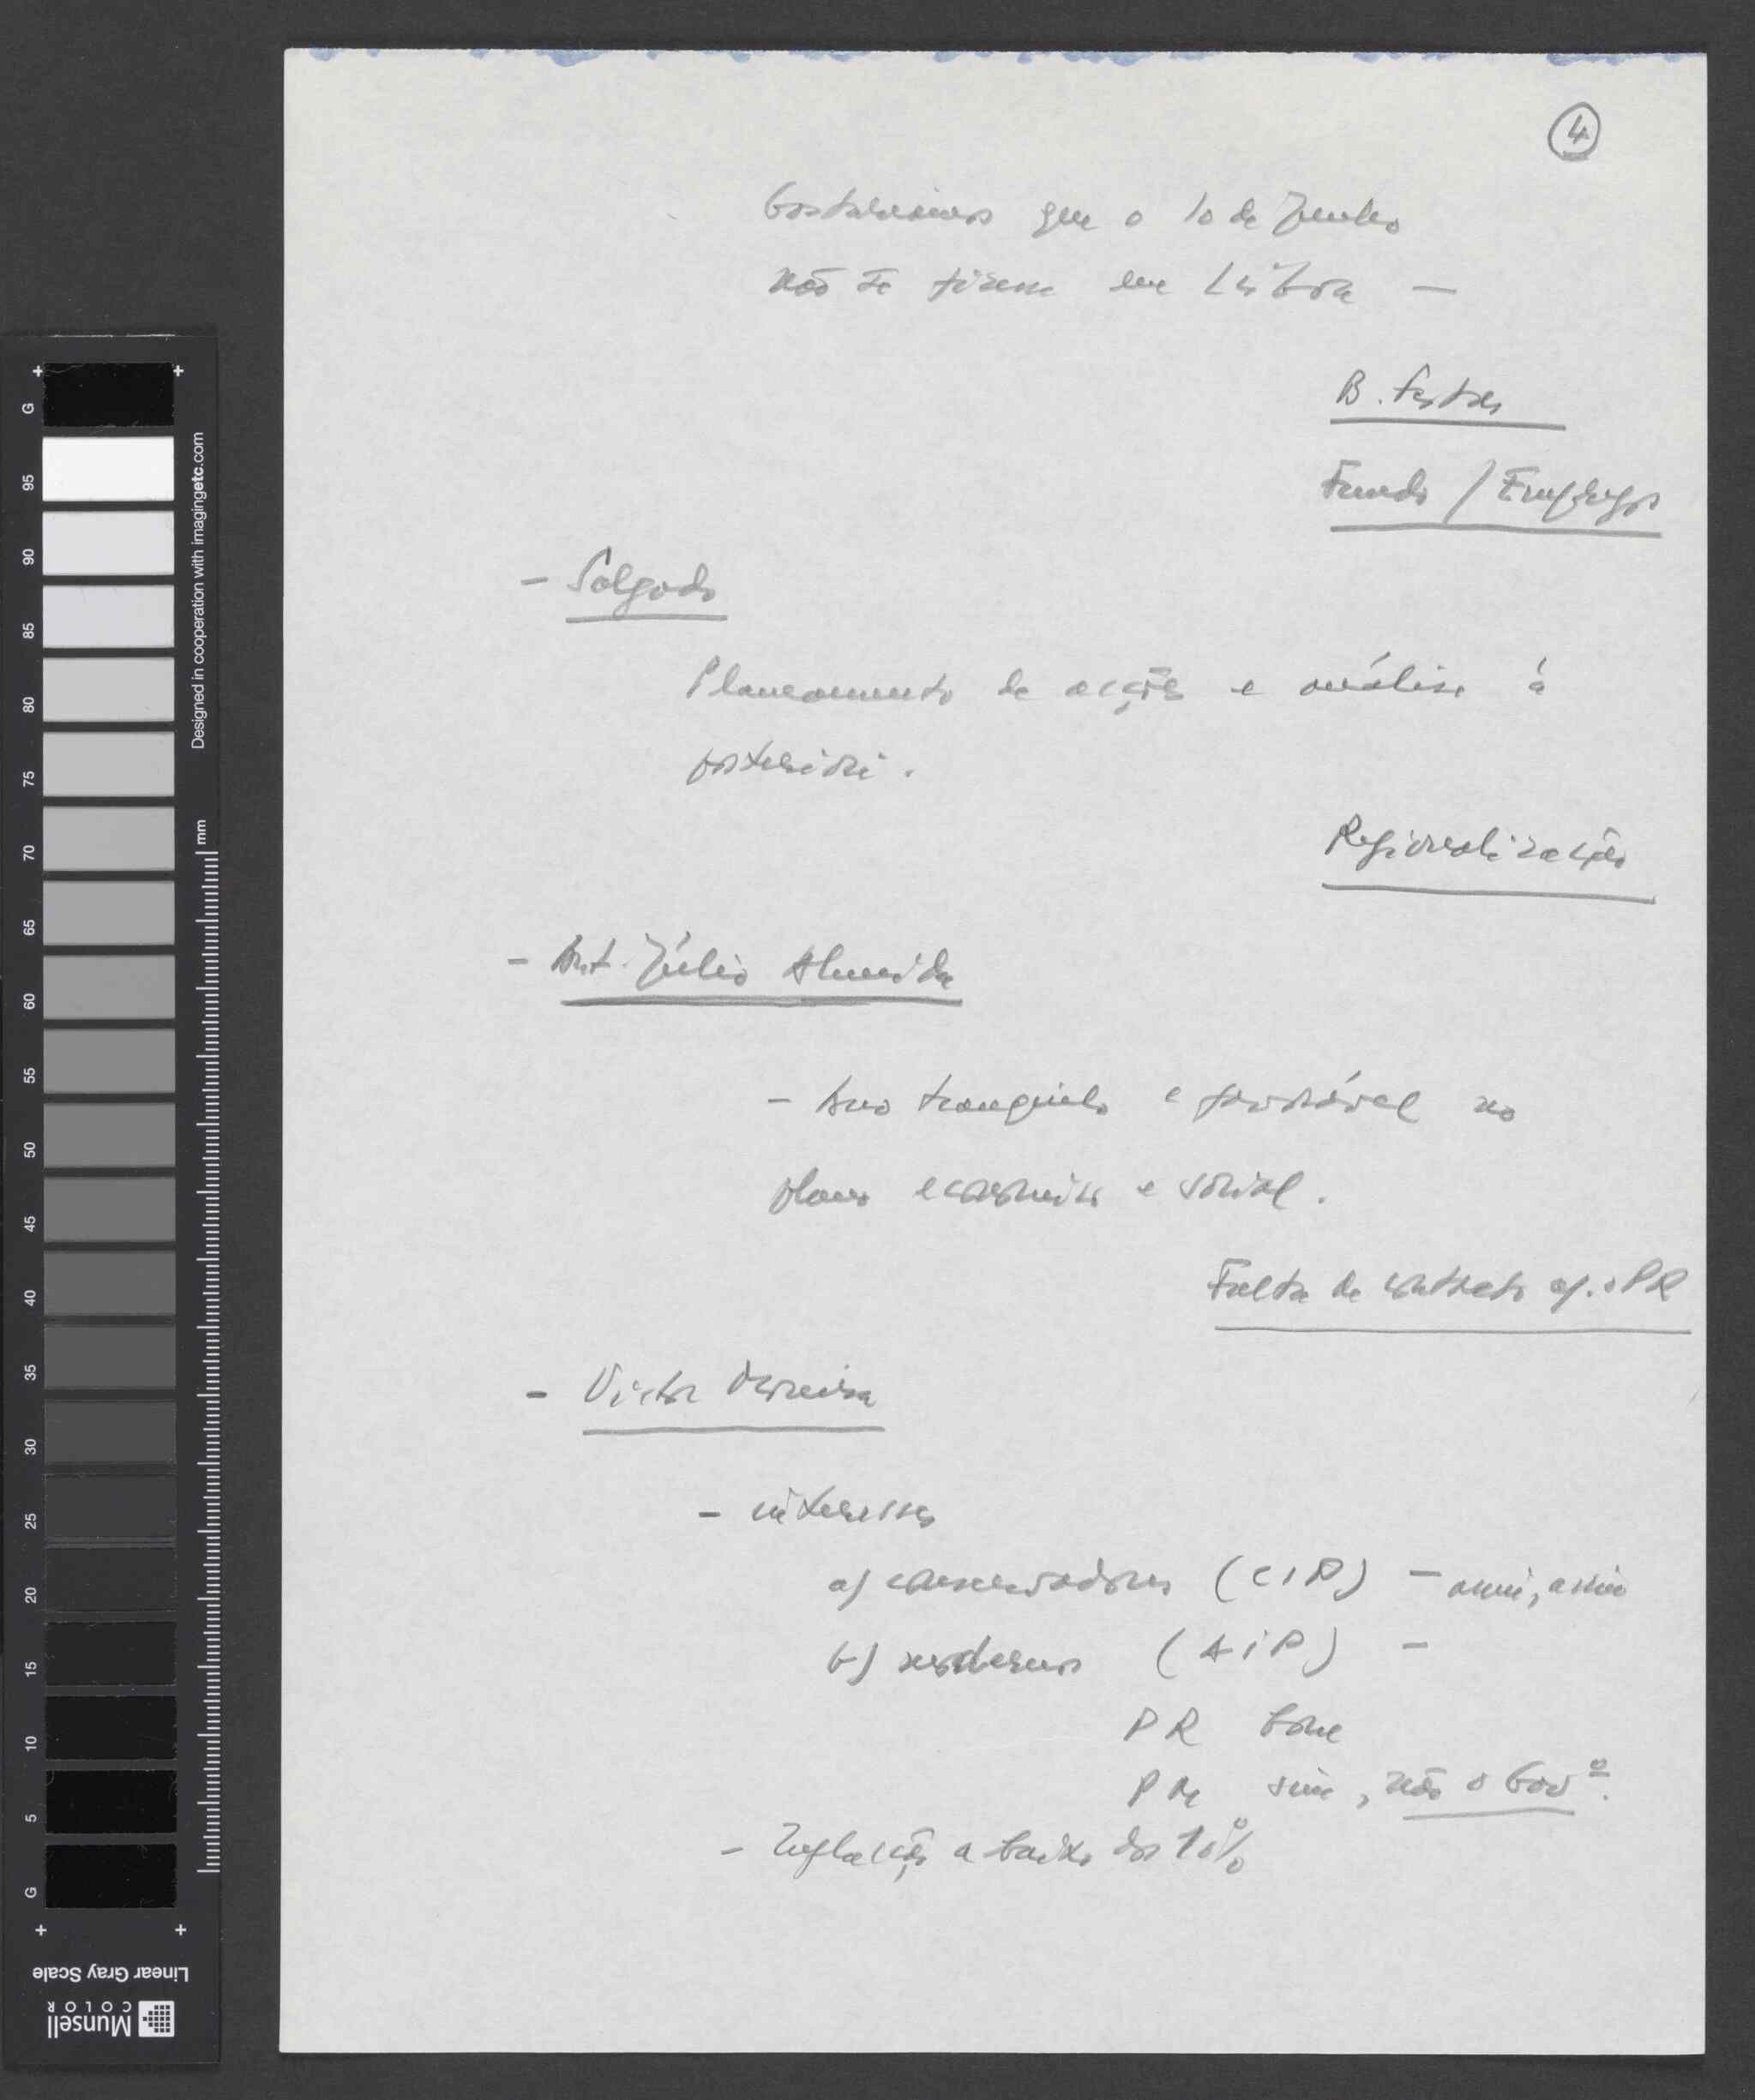 4
Gostaríamos que o 10 de Junho
não se fizesse em Lisboa —
B.
Fundo / Emprego
- Salgado
Planeamento de acções e análise à
posteriori.
Regionalização
- Ant. Júlio Almeida
- Ano tranquilo e favorável no
plano económico e social.
Falta de contacto c/. o PR
- Victor
- interesses
a) conservadores (CIP) - assim, assim
b) modernos (AIP) -
PR bom
PM sim, não o Govº.
- Inflação abaixo dos 10%
G
95
90
85
80
75
70
65
60
55
50
45
40
35
30
25
20
15
10
5
G
Designed in cooperation with imagingetc.com
mm
Linear Gray Scale
Munsell
COLOR